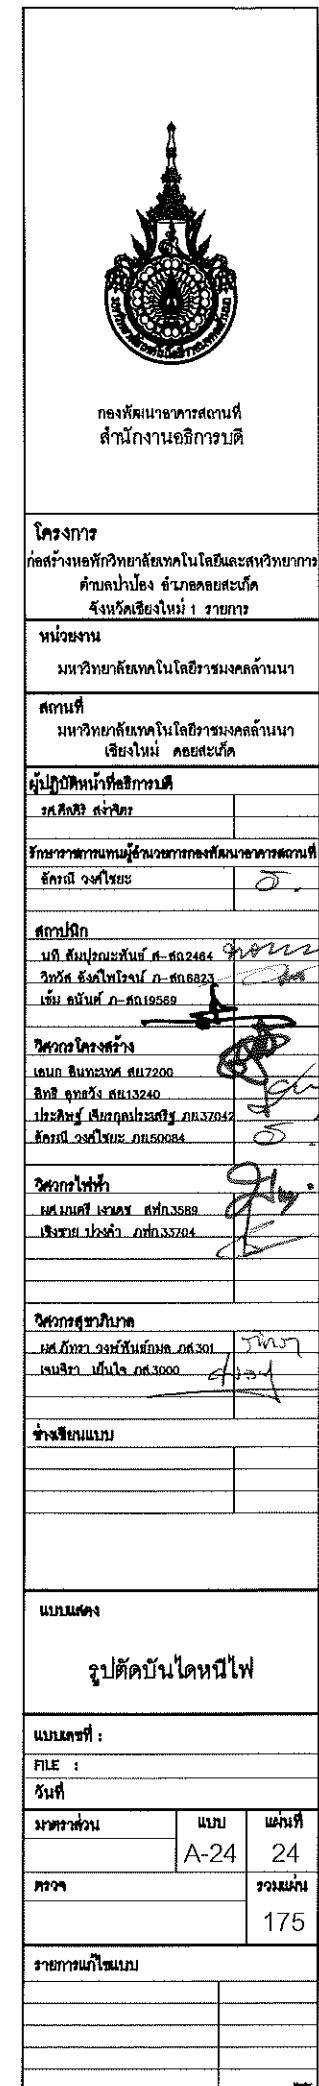 กองพัฒนาอาคารสถานที่
สำนักงานอธิการบดี
โครงการ
ก่อสร้างหอพักวิทยาลัยเทคโนโลยีและสหวิทยาการ
ตำบลป่าป้อง อำเภอดอยสะเก็ด
จังหวัดเชียงใหม่ 1 รายการ
หน่วยงาน
มหาวิทยาลัยเทคโนโลยีราชมงคลล้านนา
สถานที่
มหาวิทยาลัยเทคโนโลยีราชมงคลล้านนา
เชียงใหม่ ดอยสะเก็ด
ผู้ปฏิบัติหน้าที่อธิการบดี
รศ.ศีลศิริ สง่าจิตร
รักษาราชการแทนผู้อำนวยการกองพัฒนาอาคารสถานที่
อัครณี วงศ์ไชยะ
สถาปนิก
นที สัมปุรณะพันธ์ ส-สถ2464
วิทวัส ยังค์ไพโรจน์ ภ-สถ6823
เข้ม อนันต์ ภ-สถ19569
วิศวกรโครงสร้าง
เอนก อินทะเทศ สย7200
สิทธิ สย13240
ประดิษฐ์ เจียรกุลประเสริฐ ภย37042
อัครณี วงศ์ไชยะ ภย50084
วิศวกรไฟฟ้า
ผศ.มนตรี เงาเดช สฟก3589
เชิงชาย ปวงคำ ภฟก33704
วิศวกรสุขาภิบาล
ผศ.ภัทรา วงษ์พันธ์กมล ภส301
เจนจิรา เย็นใจ ภส3000
ช่างเขียนแบบ
แบบแสดง
รูปตัดบันไดหนีไฟ
แบบเลขที่ :
FILE :
วันที่
มาตราส่วน แบบ แผ่นที่
A-24 24
ตรวจ รวมแผ่น
175
รายการแก้ไขแบบ